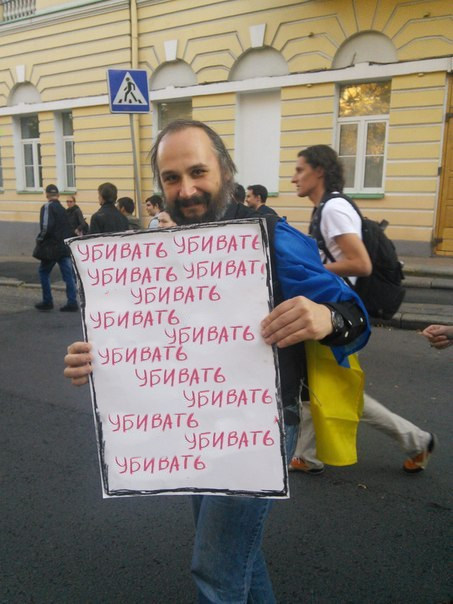 УБИВАТЬ УБИВАТЬ
УБИВАТЬ УБИВАТЬ
УБИВАТЬ
УБИВАТЬ
УБИВАТЬ
УБИВАТЬ
УБИВАТЬ
УБИВАТЬ
УБИВАТЬ
УБИВАТЬ
УБИВАТЬ